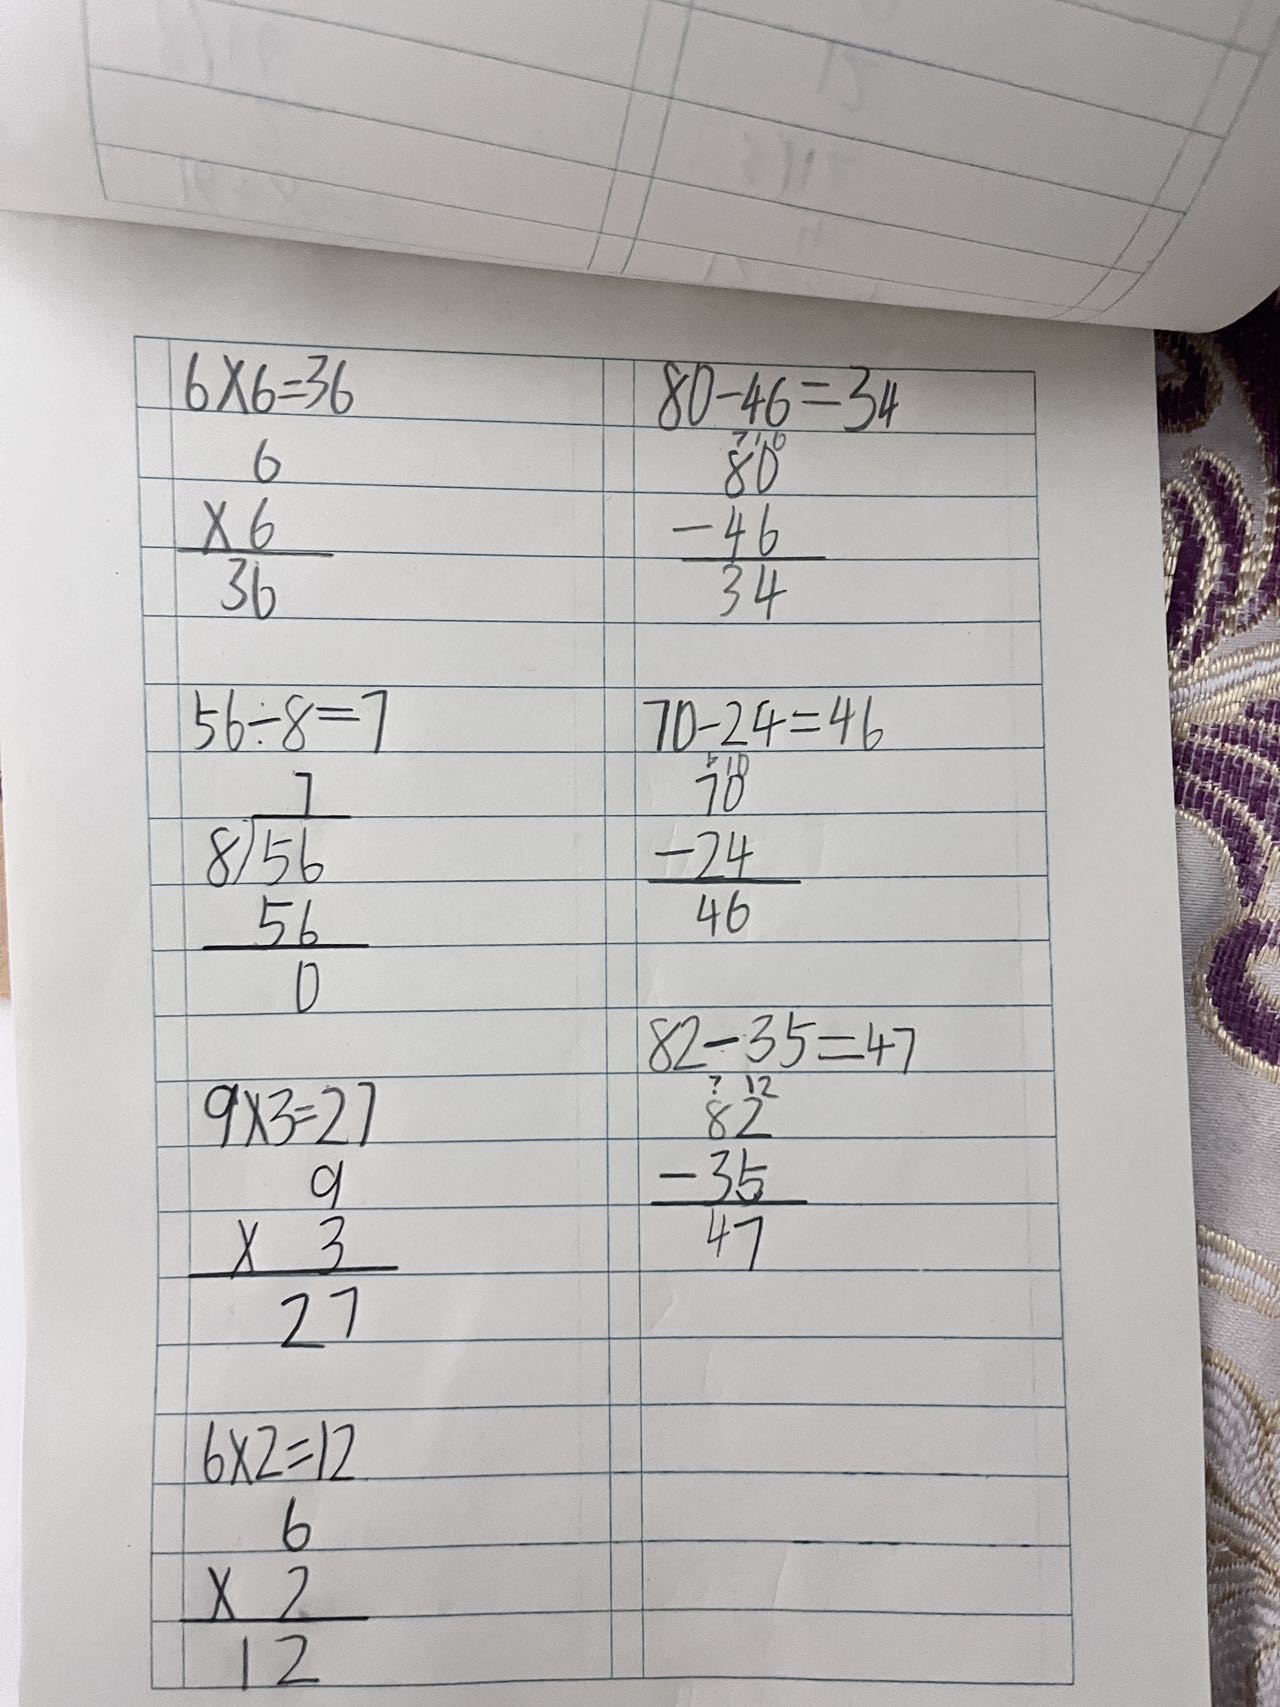 6×6=36
6
×6
36
56÷8=7
7
8)56
56
0
9×3=27
9
× 3
27
6×2=12
6
× 2
12
80-46=34
7 10
80
-46
34
70-24=46
6 10
70
-24
46
82-35=47
7 12
82
-35
47